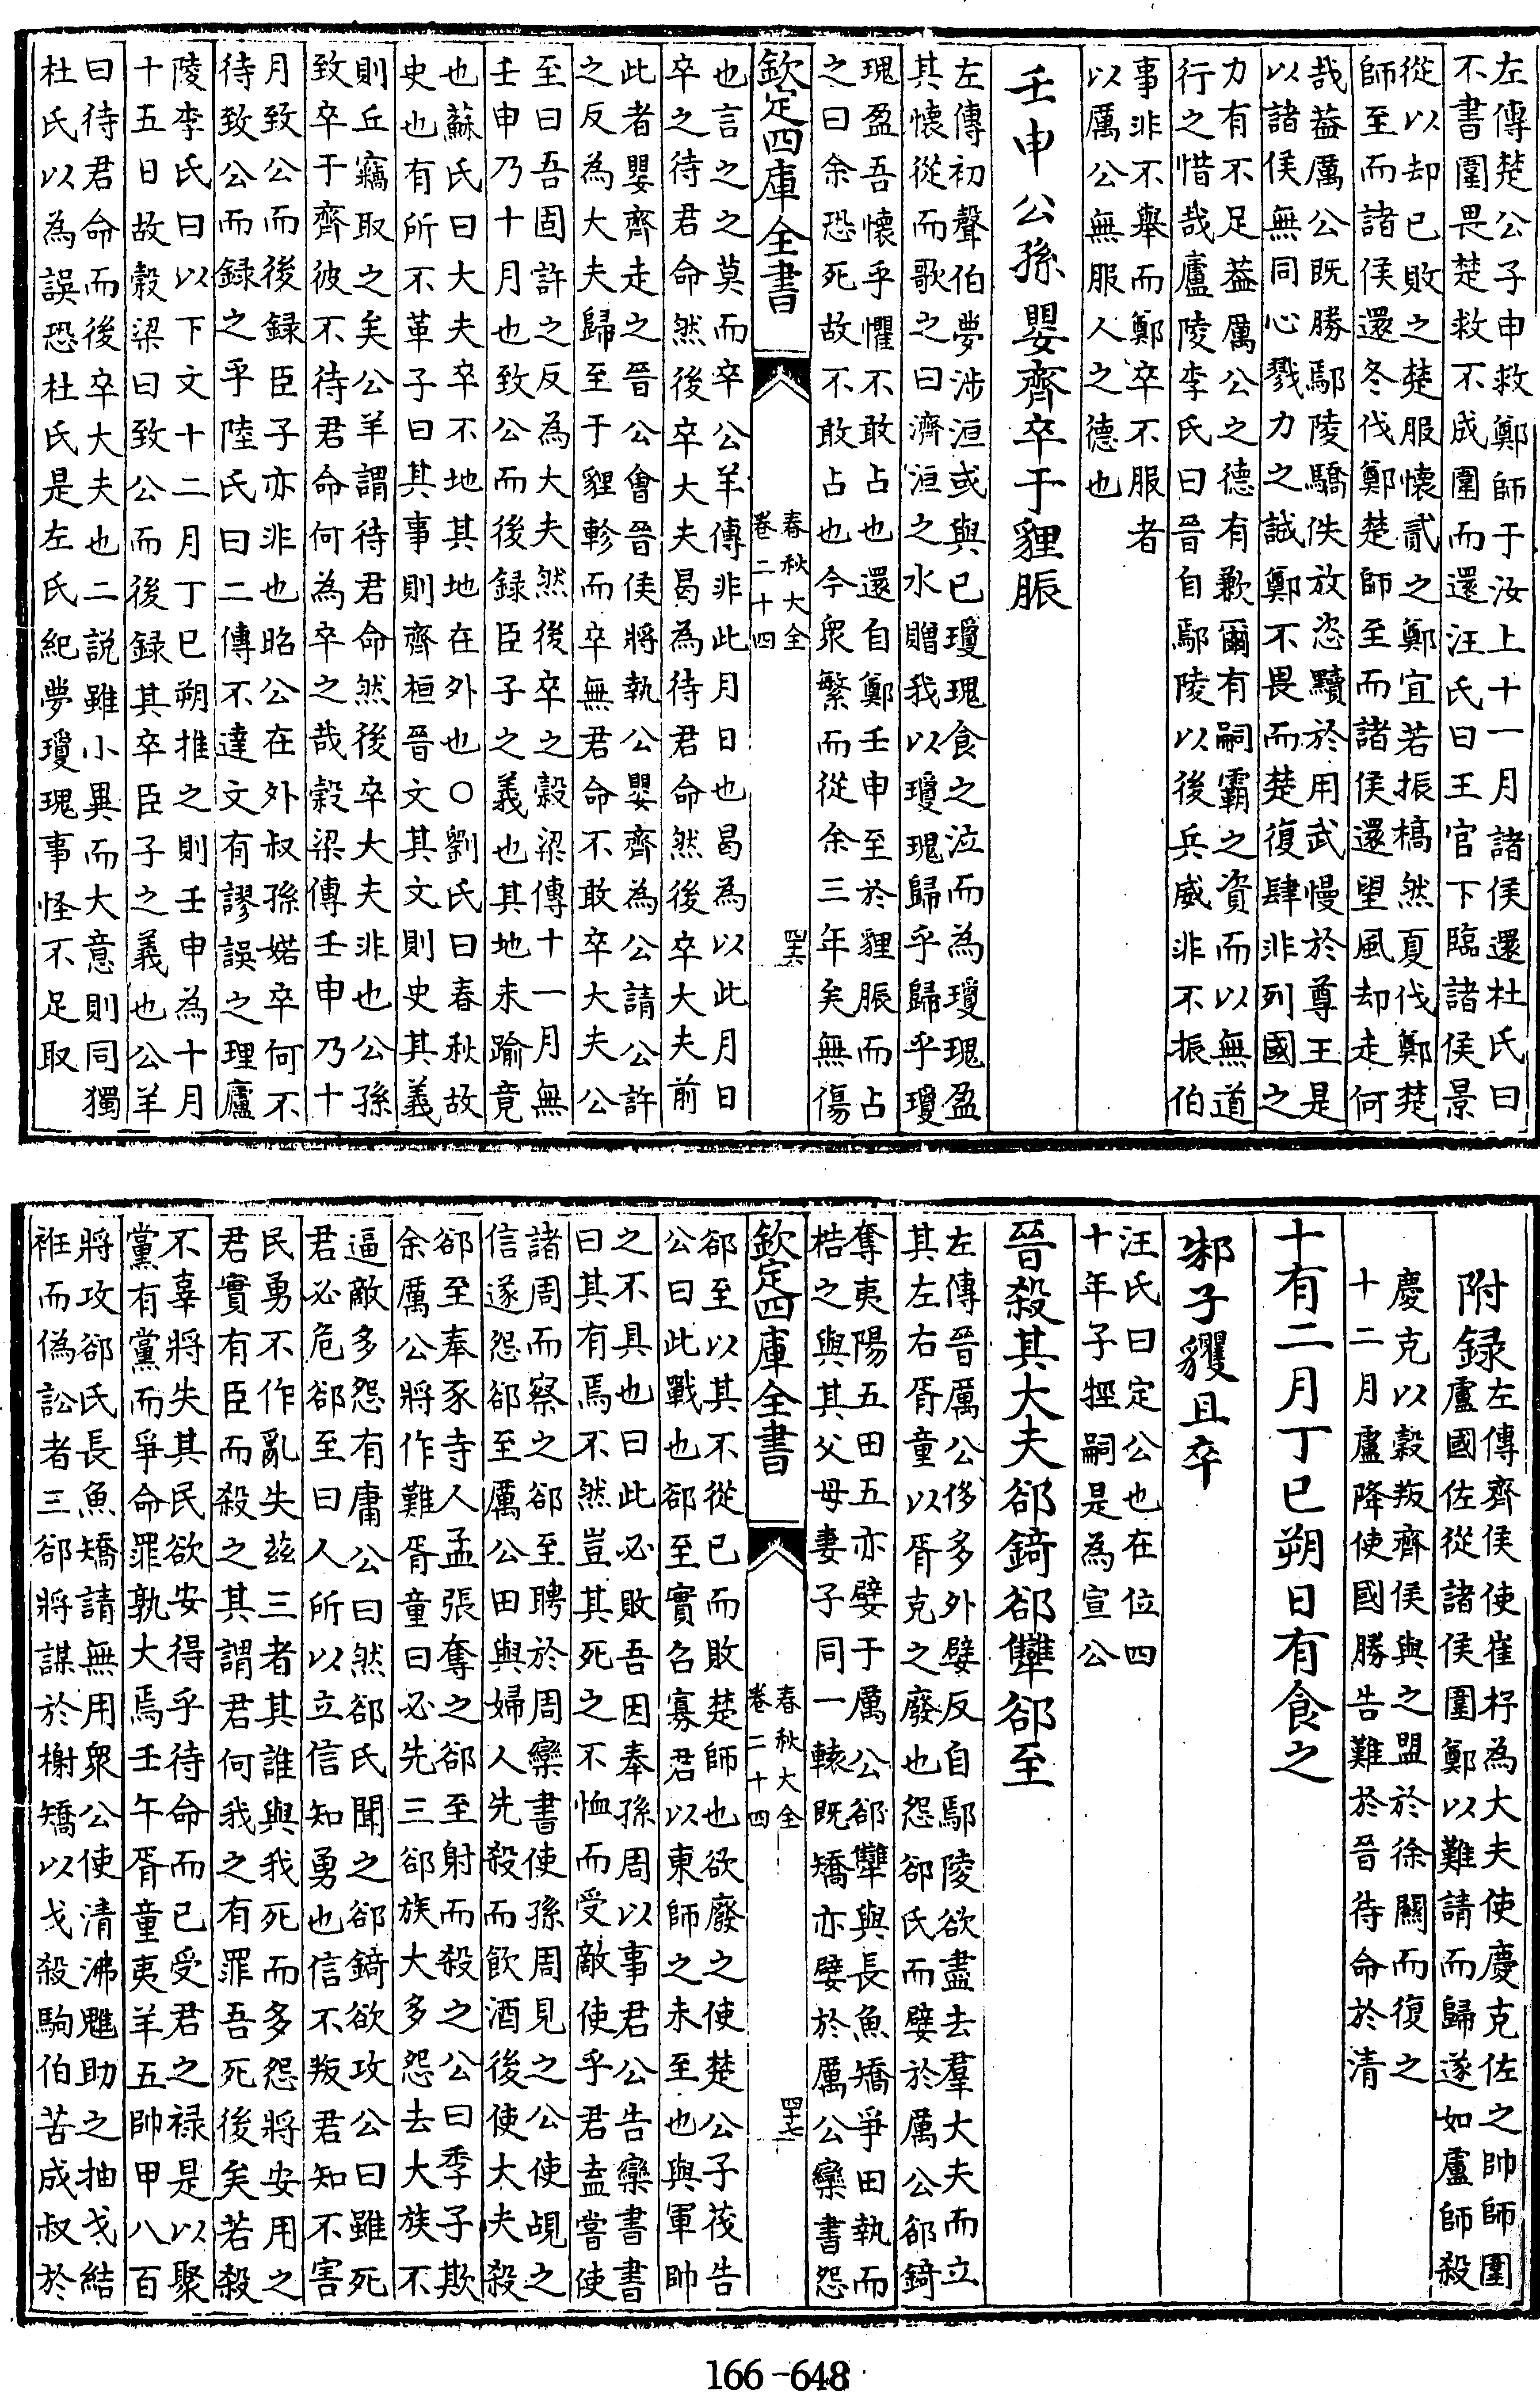 左傳楚公子申救鄭師于汝上十一月諸侯還杜氏曰
不書圍畏楚救不成圍而還汪氏曰王官下臨諸侯景
從以却已敗之楚服懷貳之鄭宜若振槁然夏伐鄭楚
師至而諸侯還冬伐鄭楚師至而諸侯還望風却走何
哉葢厲公既勝鄢陵驕佚放恣黷於用武慢於尊王是
以諸侯無同心戮力之誠鄭不畏而楚復肆非列國之
力有不足葢厲公之德有歉爾有嗣霸之資而以無道
行之惜哉廬陵李氏曰晉自鄢陵以後兵威非不振伯
事非不舉而鄭卒不服者
以厲公無服人之德也
壬申公孫嬰齊卒于貍脤
左傳初聲伯夢涉洹或與已瓊瑰食之泣而為瓊瑰盈
其懷從而歌之曰濟洹之水贈我以瓊瑰歸乎歸乎瓊
瑰盈吾懷乎懼不敢占也還自鄭壬申至於貍脤而占
之曰余恐死故不敢占也今衆繁而從余三年矣無傷
欽定四庫全書
春秋大全
卷二十四
四十六
也言之之莫而卒公羊傳非此月日也曷為以此月日
卒之待君命然後卒大夫曷為待君命然後卒大夫前
此者嬰齊走之晉公會晉侯將執公嬰齊為公請公許
之反為大夫歸至于貍軫而卒無君命不敢卒大夫公
至曰吾固許之反為大夫然後卒之穀梁傳十一月無
壬申乃十月也致公而後録臣子之義也其地未踰竟
也蘇氏曰大夫卒不地其地在外也○劉氏曰春秋故
史也有所不革子曰其事則齊桓晉文其文則史其義
則丘竊取之矣公羊謂待君命然後卒大夫非也公孫
致卒于齊彼不待君命何為卒之哉穀梁傳壬申乃十
月致公而後録臣子亦非也昭公在外叔孫婼卒何不
待致公而録之乎陸氏曰二傳不達文有謬誤之理廬
陵李氏曰以下文十二月丁巳朔推之則壬申為十月
十五日故穀梁曰致公而後録其卒臣子之義也公羊
曰待君命而後卒大夫也二説雖小異而大意則同獨
杜氏以為誤恐杜氏是左氏紀夢瓊瑰事怪不足取
附録左傳齊侯使崔杼為大夫使慶克佐之帥師圍
盧國佐從諸侯圍鄭以難請而歸遂如盧師殺
慶克以穀叛齊侯與之盟於徐關而復之
十二月盧降使國勝告難於晉待命於清
十有二月丁巳朔日有食之
邾子貜且卒
汪氏曰定公也在位四
十年子牼嗣是為宣公
晉殺其大夫郤錡郤犫郤至
左傳晉厲公侈多外嬖反自鄢陵欲盡去羣大夫而立
其左右胥童以胥克之廢也怨郤氏而嬖於厲公郤錡
奪夷陽五田五亦嬖于厲公郤犫與長魚矯爭田執而
梏之與其父母妻子同一轅既矯亦嬖於厲公欒書怨
郤至以其不從已而敗楚師也欲廢之使楚公子茷告
公曰此戰也郤至實召寡君以東師之未至也與軍帥
欽定四庫全書
春秋大全
卷二十四
四十七
之不具也曰此必敗吾因奉孫周以事君公告欒書書
曰其有焉不然豈其死之不恤而受敵使乎君盍嘗使
諸周而察之郤至聘於周欒書使孫周見之公使覘之
信遂怨郤至厲公田與婦人先殺而飲酒後使大夫殺
郤至奉豕寺人孟張奪之郤至射而殺之公曰季子欺
余厲公將作難胥童曰必先三郤族大多怨去大族不
逼敵多怨有庸公曰然郤氏聞之郤錡欲攻公曰雖死
君必危郤至曰人所以立信知勇也信不叛君知不害
民勇不作亂失兹三者其誰與我死而多怨將安用之
君實有臣而殺之其謂君何我之有罪吾死後矣若殺
不辜將失其民欲安得乎待命而已受君之禄是以聚
黨有黨而爭命罪孰大焉壬午胥童夷羊五帥甲八百
將攻郤氏長魚矯請無用衆公使清沸魋助之抽戈結
衽而偽訟者三郤將謀於榭矯以戈殺駒伯苦成叔於
166-648